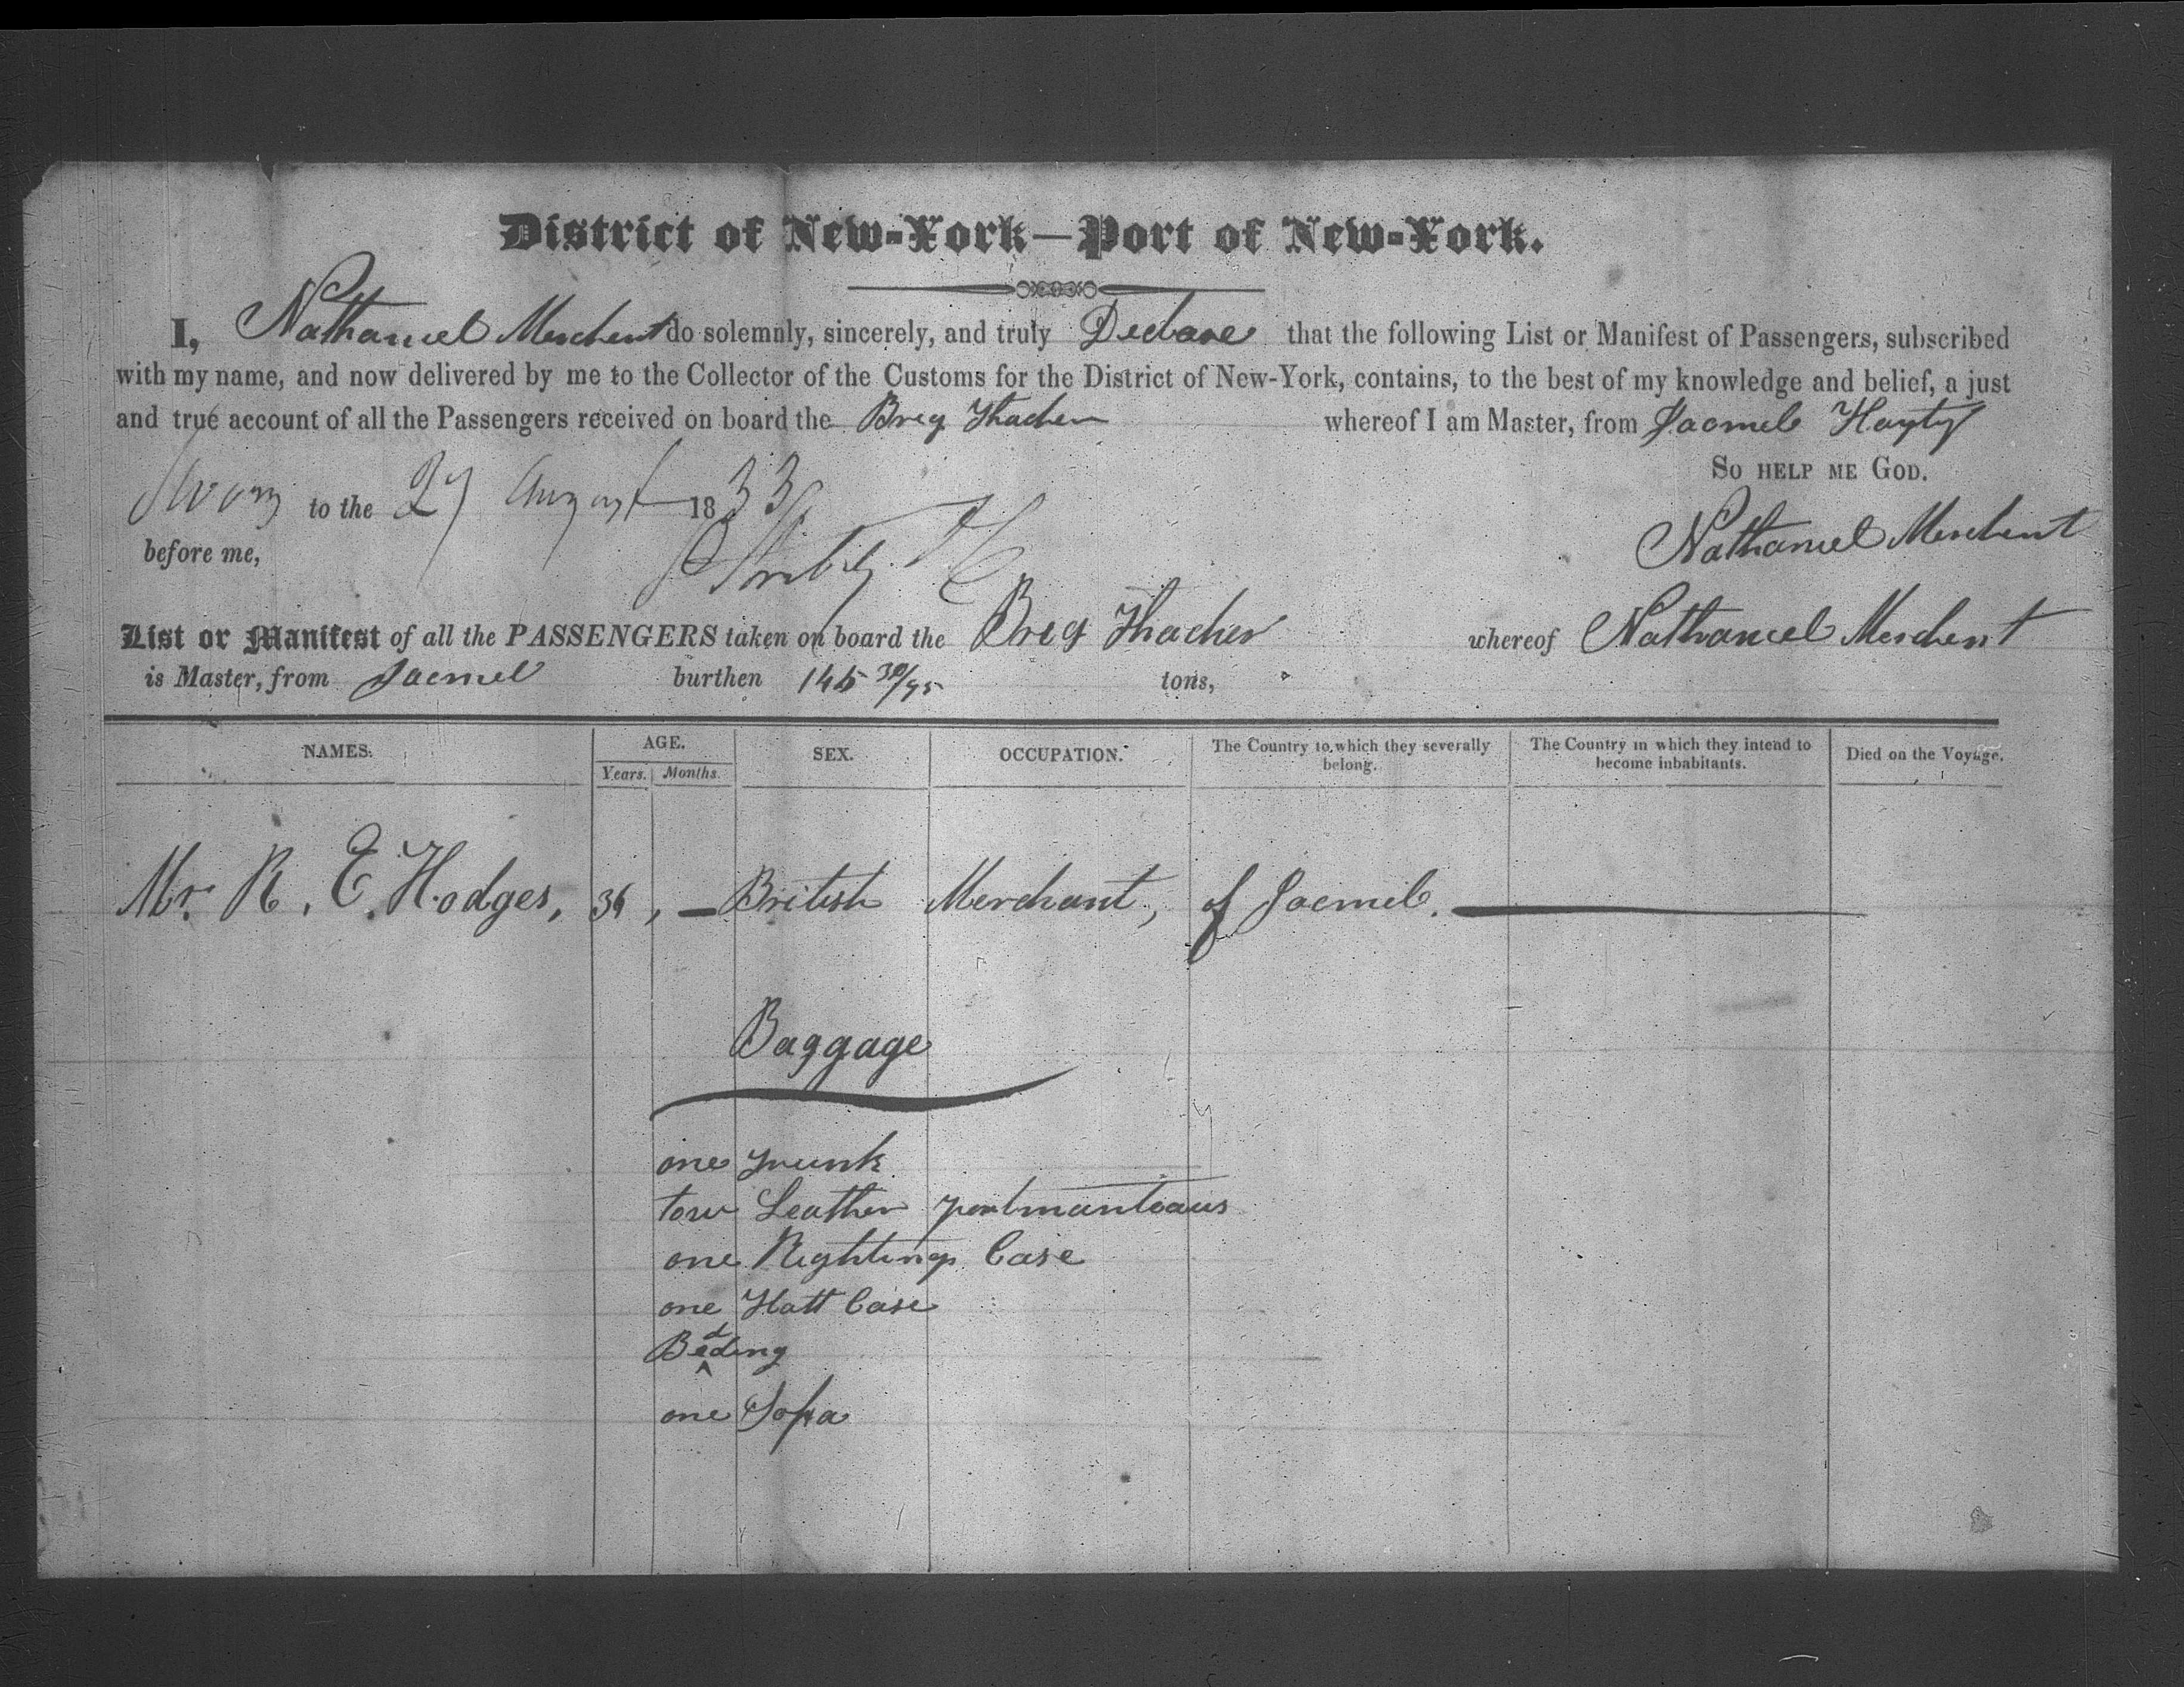 District of New-York—Port of New-York.
I, Nathaniel Merchent do solemnly, sincerely, and truly Declare that the following List or Manifest of Passengers, subscribed
with my name, and now delivered by me to the Collector of the Customs for the District of New-York, contains, to the best of my knowledge and belief, a just
and true account of all the Passengers received on board the Breg Thacher whereof I am Master, from Jacmel Hayty
So help me God.
Sworn to the 27 August 1833
before me,
Nathaniel Merchent
List or Manifest of all the PASSENGERS taken on board the Breg Thacher whereof Nathaniel Merchent
is Master, from Jacmel burthen 145 30/95 tons,
NAMES. AGE. SEX. OCCUPATION. The Country to which they severally belong. The Country in which they intend to become inhabitants. Died on the Voyage.
Years. Months.
Mr. R. E. Hodges, 36, — British Merchant, of Jacmel.
Baggage
one Trunk
tow Leather portmantoaus
one Righting Case
one Hatt Case
Bedding
one Sofa